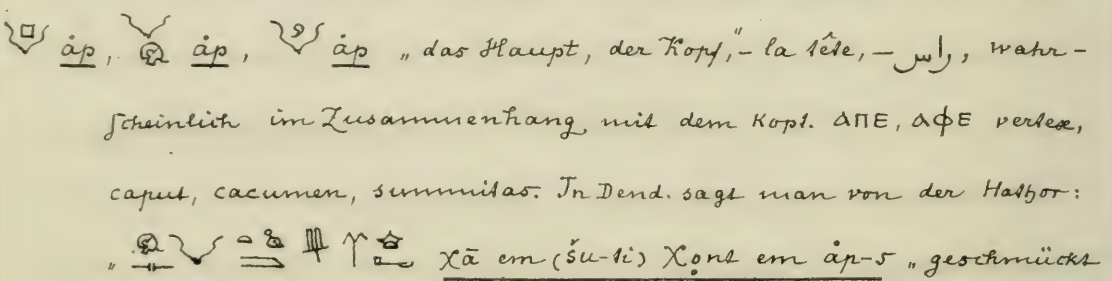 åp, åp, åp „das Haupt, der Kopf,"– la tête, – راس, wahr-
scheinlich im Zusammenhang mit dem Kopt. ⲁⲡⲉ, ⲁⲫⲉ vertex,
caput, cacumen, summitas. In Dend. sagt man von der Hathor:
„ χā em (šu-ti) χont em åp-s „geschmückt